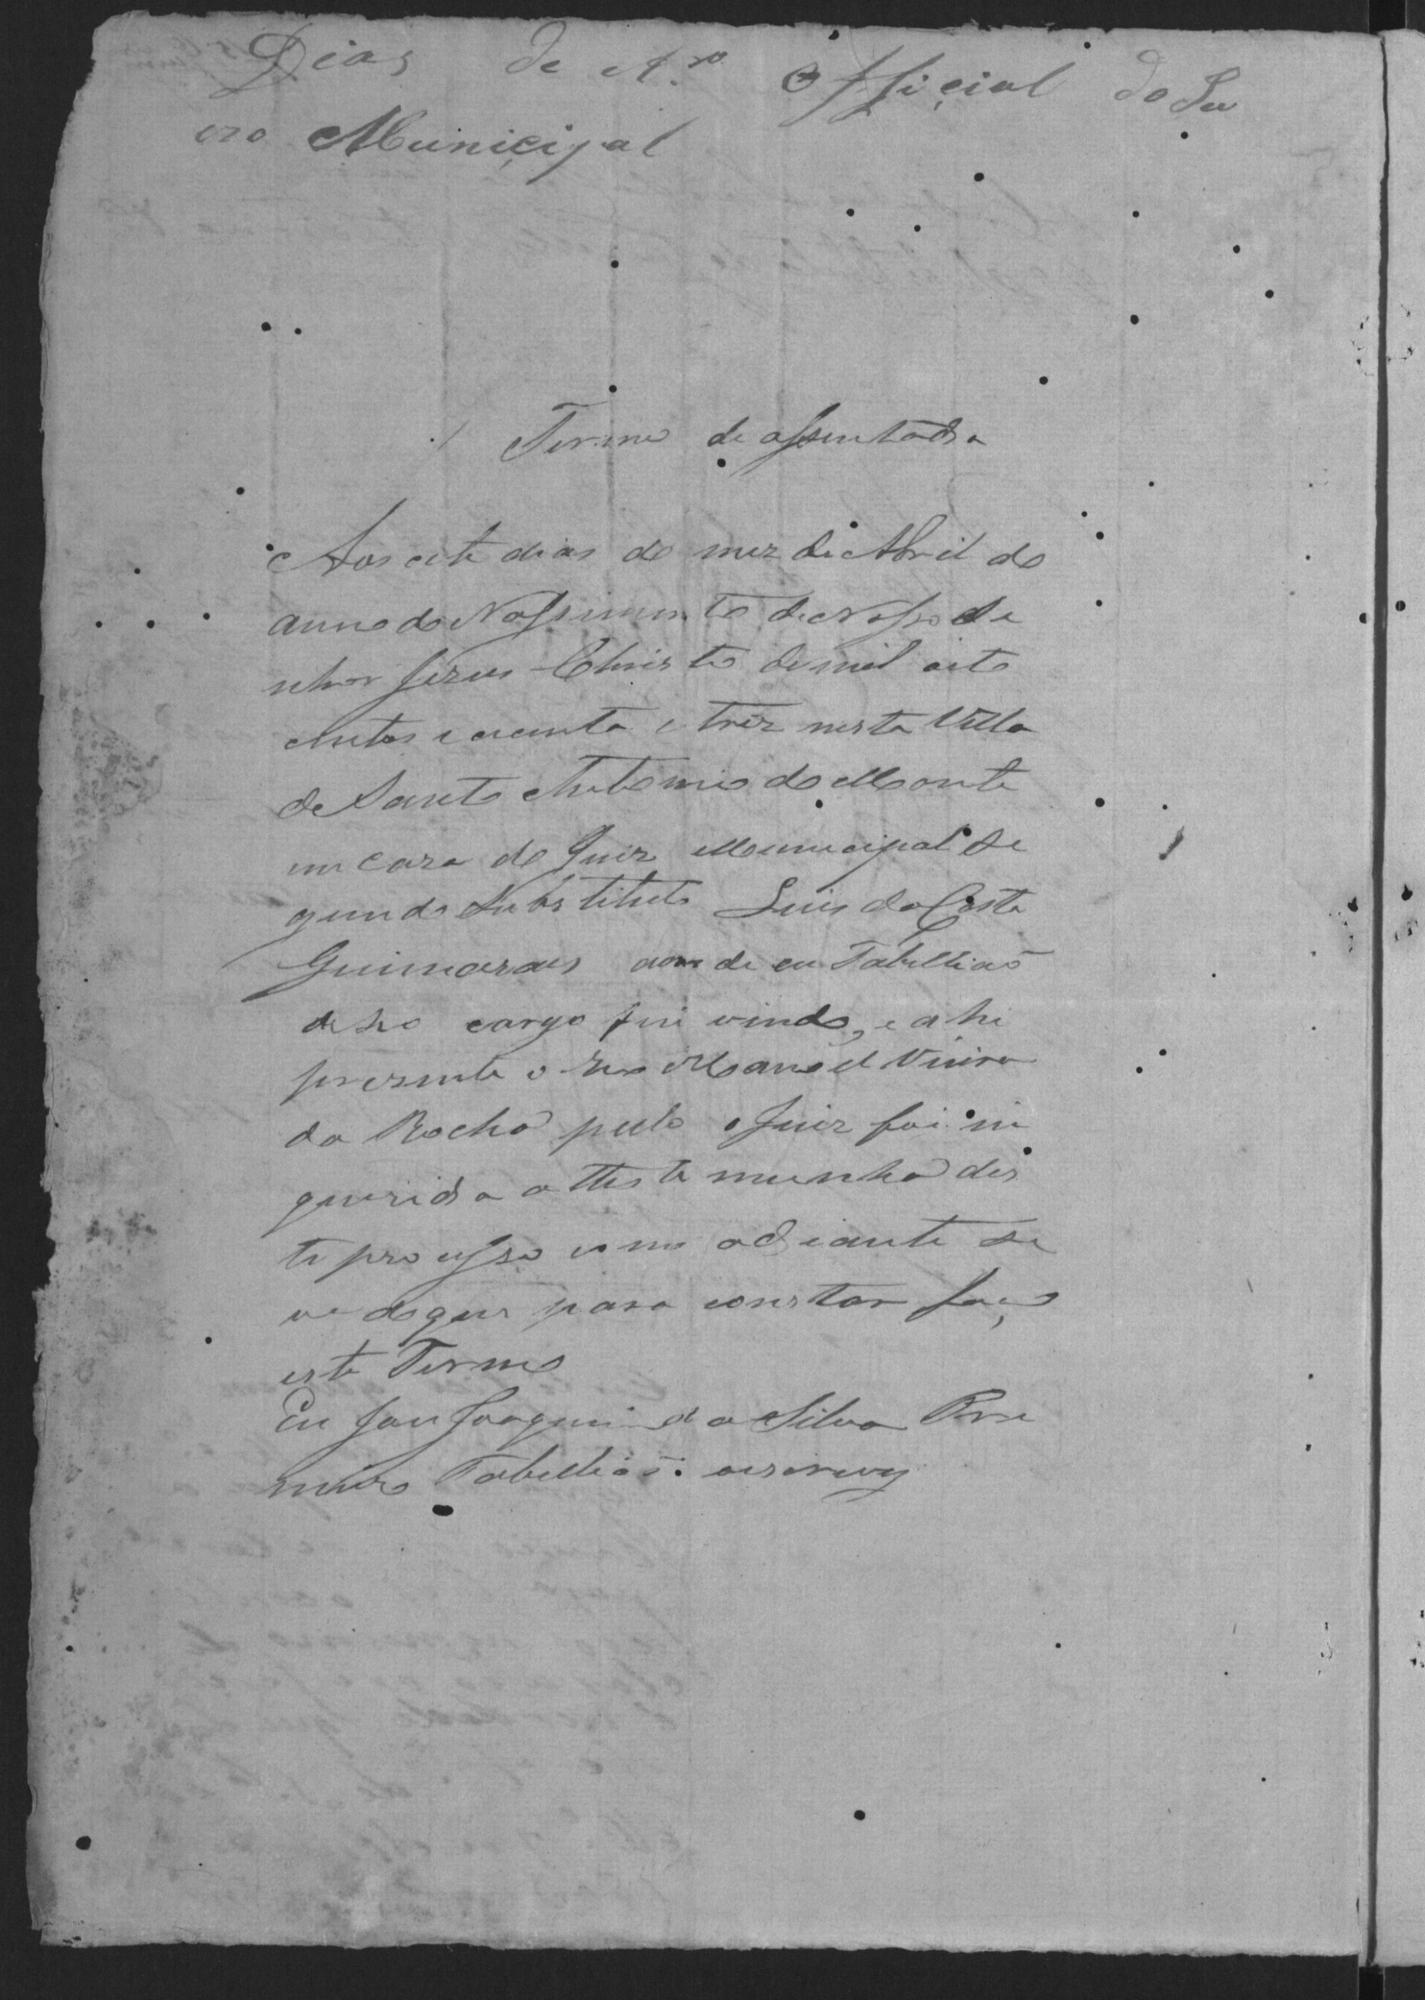 Dias de Ar.º Official do Ju
izo Municipal
Termo de assentada
Aos oito dias do mez de Abril do
anno do Nassimento de Nosso Se
nhor Jezus Christo de mil oito
centos e oitenta e trez nesta Villa
de Santo Antonio do Monte
em caza do Juiz Municipal Se
gundo Substituto Luis da Costa
Guimaraes aonde eu Tabellião
de seo cargo fui vindo, e ahi
prezente o Reo Manoel Vieira
da Rocha pelo Juiz foi in
querida a testemunha des
te processo como adiante se
ve do que para constar faço
este Termo
Eu Joaquim da Silva Pri
meiro Tabellião: escrevy